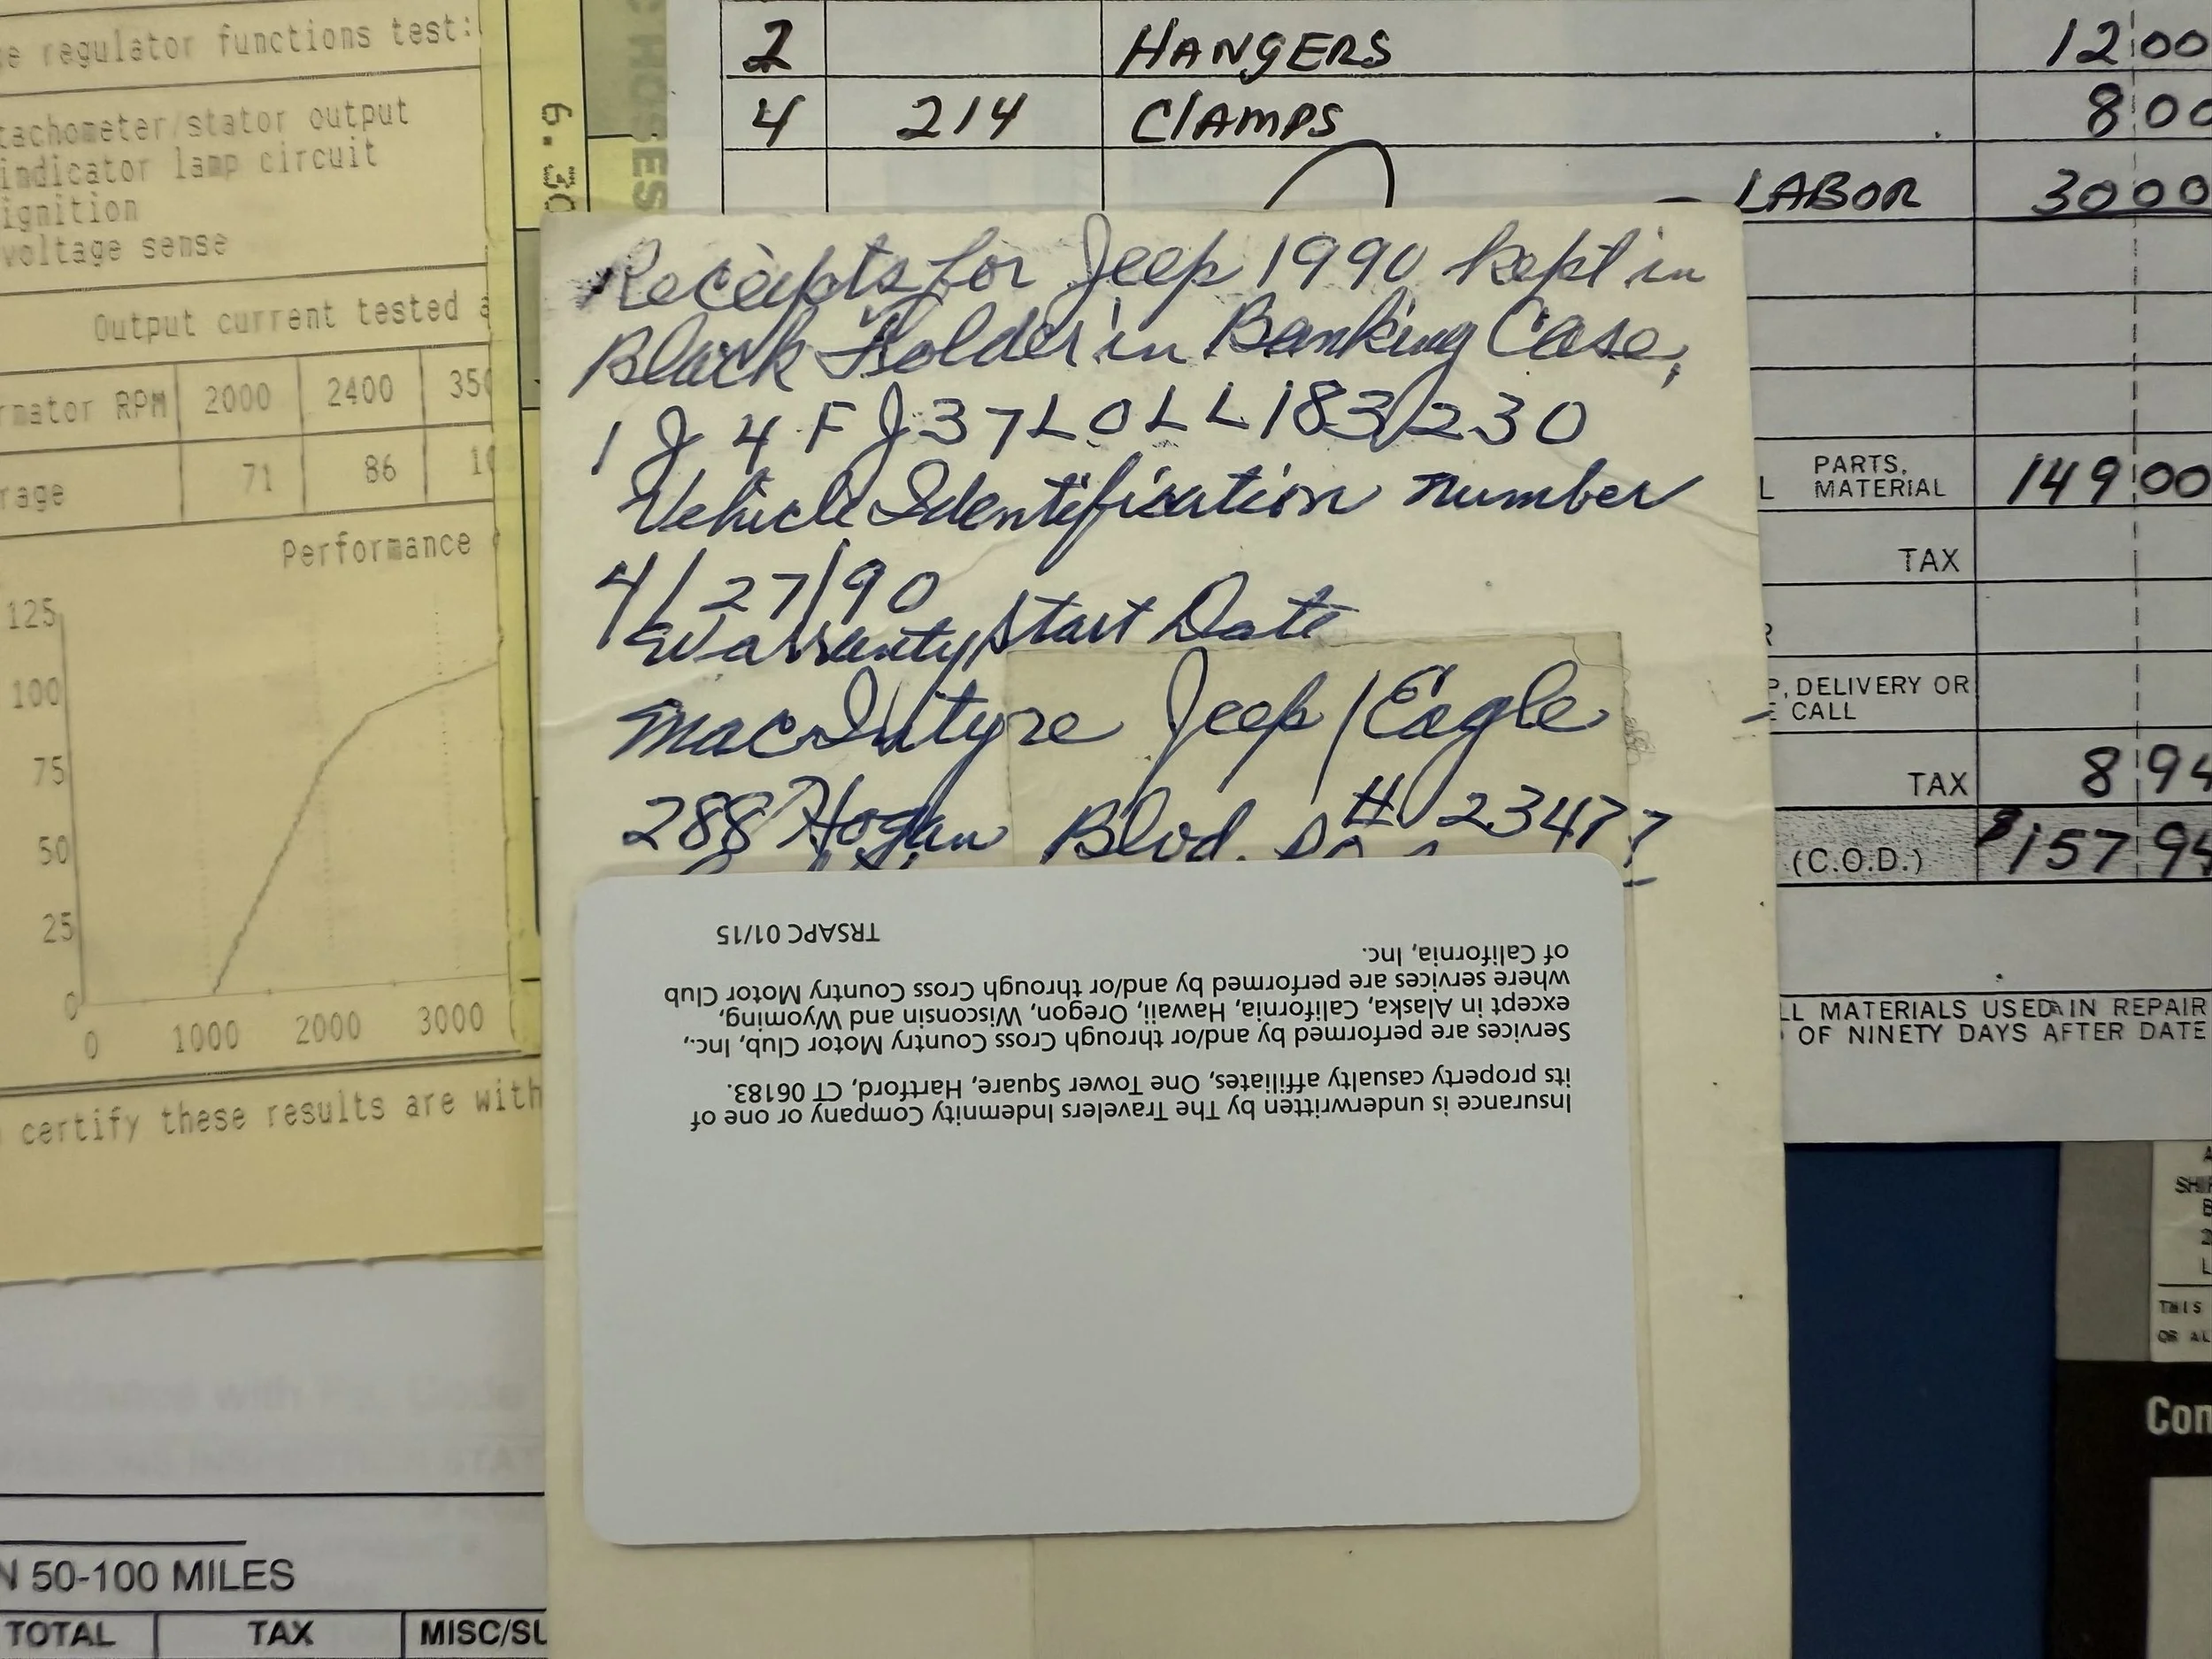 e regulator functions test:
tachometer/stator output
indicator lamp circuit
ignition
voltage sense
Output current tested
RPM 2000 2400 350
rage 71 86 10
Performance
125
100
75
50
25
0
0 1000 2000 3000
certify these results are with
6.30
HOSES
2 HANGERS 12 00
4 214 ClAMPS 8 00
- LABOR 30 00
PARTS, MATERIAL 149 00
TAX
P, DELIVERY OR
E CALL
TAX 8 94
(C.O.D.) $157 94
LL MATERIALS USED IN REPAIR
OF NINETY DAYS AFTER DATE
Receipts for Jeep 1990 kept in
Black Holder in Banking Case,
1J4FJ37L0LL183230
Vehicle Identification number
4/27/90
Warranty Start Date
MacIntyre Jeep/Eagle
288 Hogan Blvd. # 23477
TRSAPC 01/15
Insurance is underwritten by The Travelers Indemnity Company or one of
its property casualty affiliates, One Tower Square, Hartford, CT 06183.
Services are performed by and/or through Cross Country Motor Club, Inc.,
except in Alaska, California, Hawaii, Oregon, Wisconsin and Wyoming,
where services are performed by and/or through Cross Country Motor Club
of California, Inc.
N 50-100 MILES
TOTAL TAX MISC/SU
SHI
THIS
OR AL
Con